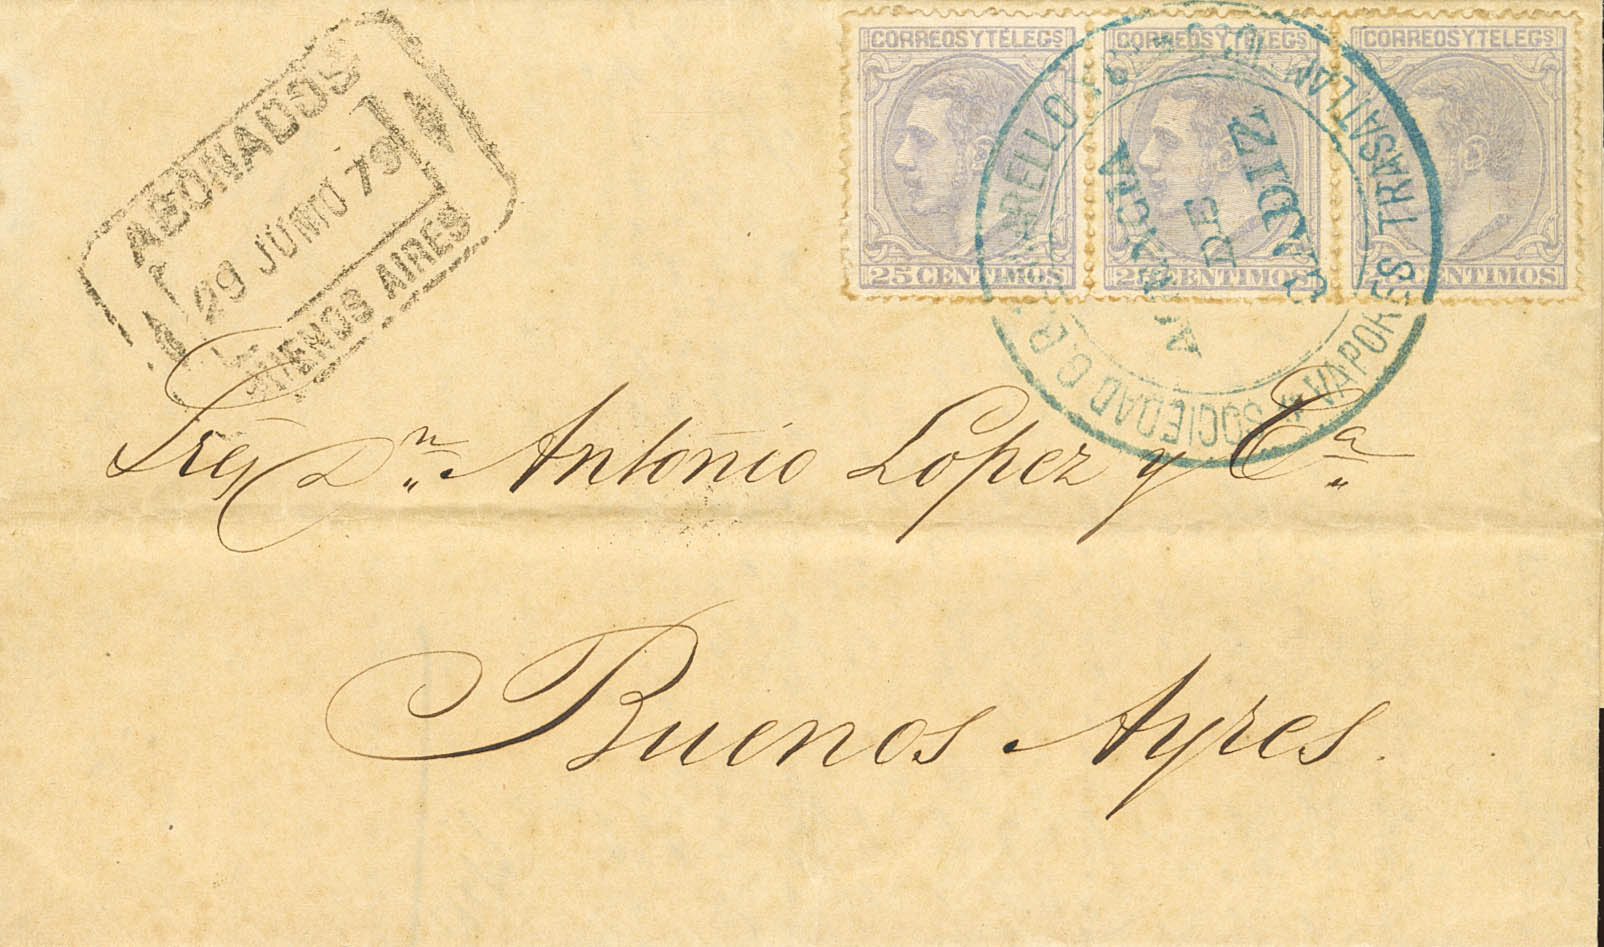 ABONADOS
29 JUNIO 79
BUENOS AIRES
CORREOS Y TELEGS
25 CENTIMOS
CORREOS Y TELEGS
25 CENTIMOS
CORREOS Y TELEGS
25 CENTIMOS
SOCIEDAD G. B. LAVARELLO
VAPORES TRASATLAN
AGENCIA
DE
CADIZ
Sres Dn Antonio Lopez y Ca
Buenos Ayres.